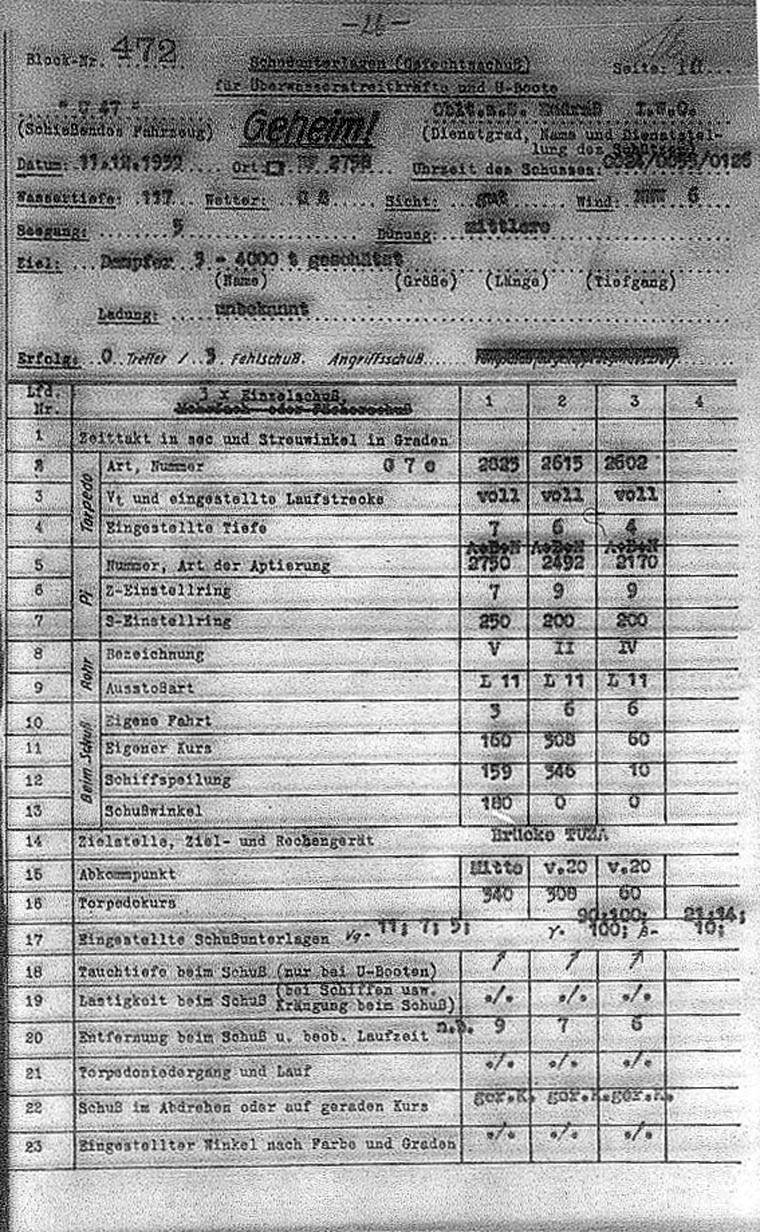 -26-
Block-Nr. 472
Schußunterlagen (Gefechtsschuß)
für Überwasserstreitkräfte und U-Boote
Seite:
" U 47 "
(Schießendes Fahrzeug)
Geheim!
Oblt.z.S. Endraß I.W.O.
(Dienstgrad, Name und Dienststel-
lung des Schützen)
Datum: 11.12.1939 Ort: 2798 Uhrzeit des Schusses: /0053/0126
Wassertiefe: 117 Wetter: C 8 Sicht: gut Wind: NNW 6
Seegang: 5 Dünung: mittlere
Ziel: Dampfer 3 - 4000 t geschätzt
(Name) (Größe) (Länge) (Tiefgang)
Ladung: unbekannt
Erfolg: 0 Treffer / 3 Fehlschuß. Angriffsschuß
Lfd. Nr. 3 x Einzelschuß, 1 2 3 4
Mehrfach- oder Fächerschuß
1 Zeittakt in sec und Streuwinkel in Graden
Torpedo
2 Art, Nummer G 7 e 2825 2615 2602
3 Vt und eingestellte Laufstrecke voll voll voll
4 Eingestellte Tiefe 7 6 4
Pi
A+B+N A+B+N A+B+N
5 Nummer, Art der Aptierung 2750 2492 2170
6 Z-Einstellring 7 9 9
7 S-Einstellring 250 200 200
Rohr
8 Bezeichnung V II IV
9 Ausstoßart L 11 L 11 L 11
Beim Schuß
10 Eigene Fahrt 3 6 6
11 Eigener Kurs 160 308 60
12 Schiffspeilung 159 346 10
13 Schußwinkel 180 0 0
14 Zielstelle, Ziel- und Rechengerät Brücke TUZA
15 Abkommpunkt Mitte v.20 v.20
16 Torpedokurs 340 308 60
17 Eingestellte Schußunterlagen Vg- 11; 7; 5; γ- 90;100; 100; β- 21;14; 10;
18 Tauchtiefe beim Schuß (nur bei U-Booten)
19 Lastigkeit beim Schuß (bei Schiffen usw. Krängung beim Schuß) ./. ./. ./.
20 Entfernung beim Schuß u. beob. Laufzeit n.b. 9 7 6
21 Torpedoniedergang und Lauf ./. ./. ./.
22 Schuß im Abdrehen oder auf geraden Kurs ger.K. ger.K. ger.K.
23 Eingestellter Winkel nach Farbe und Graden ./. ./. ./.